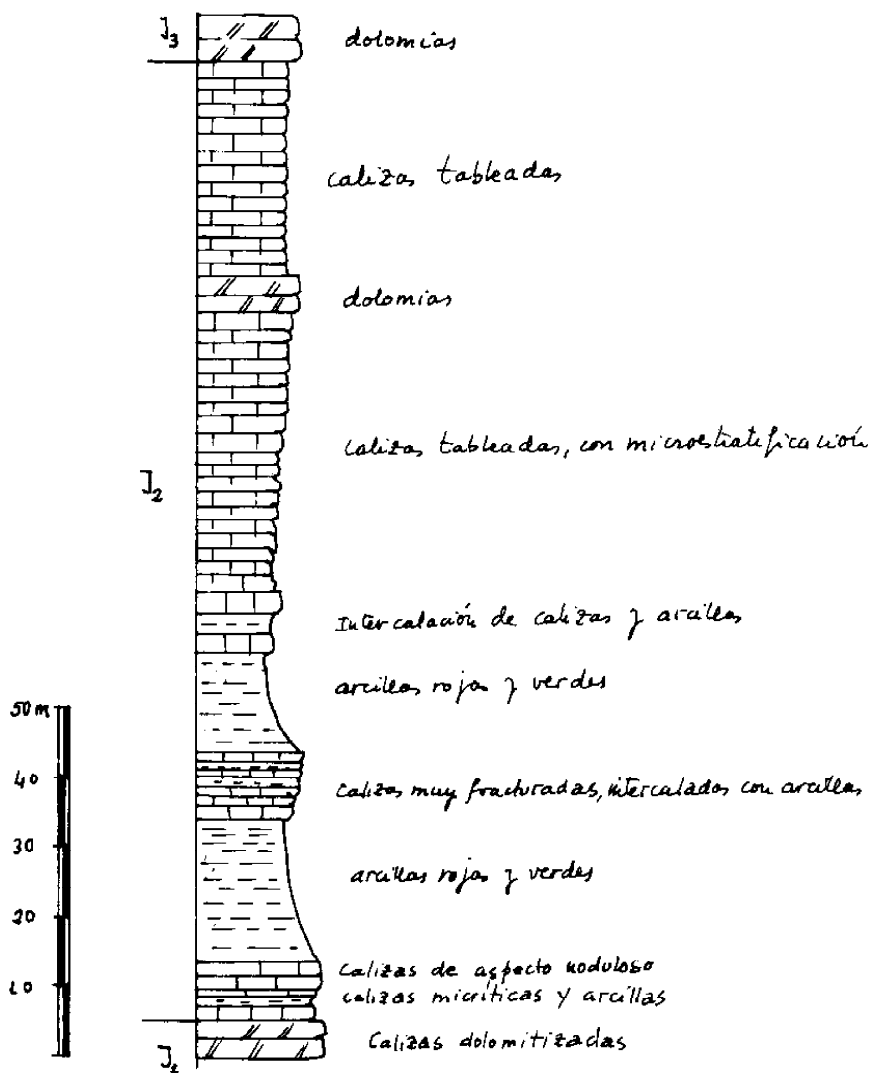 J3
dolomias
calizas tableadas
dolomias
calizas tableadas, con microestratificación
J2
Intercalación de calizas y arcillas
arcillas rojas y verdes
50 m
40
calizas muy fracturadas, intercalados con arcillas
30
arcillas rojas y verdes
20
Calizas de aspecto noduloso
10
calizas micríticas y arcillas
Calizas dolomitizadas